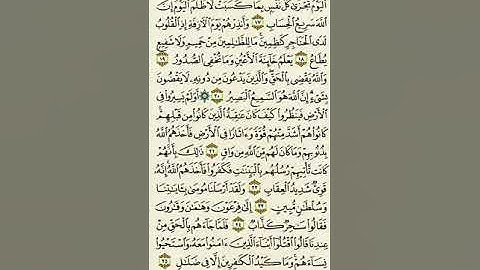 ٱلْيَوْمَ تُجْزَىٰ كُلُّ نَفْسٍۭ بِمَا كَسَبَتْ لَا ظُلْمَ ٱلْيَوْمَ إِنَّ
ٱللَّهَ سَرِيعُ ٱلْحِسَابِ ١٧ وَأَنذِرْهُمْ يَوْمَ ٱلْـَٔازِفَةِ إِذِ ٱلْقُلُوبُ
لَدَى ٱلْحَنَاجِرِ كَـٰظِمِينَ مَا لِلظَّـٰلِمِينَ مِنْ حَمِيمٍ وَلَا شَفِيعٍ
يُطَاعُ ١٨ يَعْلَمُ خَآئِنَةَ ٱلْأَعْيُنِ وَمَا تُخْفِى ٱلصُّدُورُ ١٩
وَٱللَّهُ يَقْضِى بِٱلْحَقِّ وَٱلَّذِينَ يَدْعُونَ مِن دُونِهِۦ لَا يَقْضُونَ
بِشَىْءٍ إِنَّ ٱللَّهَ هُوَ ٱلسَّمِيعُ ٱلْبَصِيرُ ٢٠ ۞ أَوَلَمْ يَسِيرُوا۟ فِى
ٱلْأَرْضِ فَيَنظُرُوا۟ كَيْفَ كَانَ عَـٰقِبَةُ ٱلَّذِينَ كَانُوا۟ مِن قَبْلِهِمْ
كَانُوا۟ هُمْ أَشَدَّ مِنْهُمْ قُوَّةً وَءَاثَارًا فِى ٱلْأَرْضِ فَأَخَذَهُمُ ٱللَّهُ
بِذُنُوبِهِمْ وَمَا كَانَ لَهُم مِّنَ ٱللَّهِ مِن وَاقٍ ٢١ ذَٰلِكَ بِأَنَّهُمْ
كَانَت تَّأْتِيهِمْ رُسُلُهُم بِٱلْبَيِّنَـٰتِ فَكَفَرُوا۟ فَأَخَذَهُمُ ٱللَّهُ إِنَّهُۥ
قَوِىٌّ شَدِيدُ ٱلْعِقَابِ ٢٢ وَلَقَدْ أَرْسَلْنَا مُوسَىٰ بِـَٔايَـٰتِنَا
وَسُلْطَـٰنٍ مُّبِينٍ ٢٣ إِلَىٰ فِرْعَوْنَ وَهَـٰمَـٰنَ وَقَـٰرُونَ
فَقَالُوا۟ سَـٰحِرٌ كَذَّابٌ ٢٤ فَلَمَّا جَآءَهُم بِٱلْحَقِّ مِنْ
عِندِنَا قَالُوا۟ ٱقْتُلُوٓا۟ أَبْنَآءَ ٱلَّذِينَ ءَامَنُوا۟ مَعَهُۥ وَٱسْتَحْيُوا۟
نِسَآءَهُمْ وَمَا كَيْدُ ٱلْكَـٰفِرِينَ إِلَّا فِى ضَلَـٰلٍ ٢٥